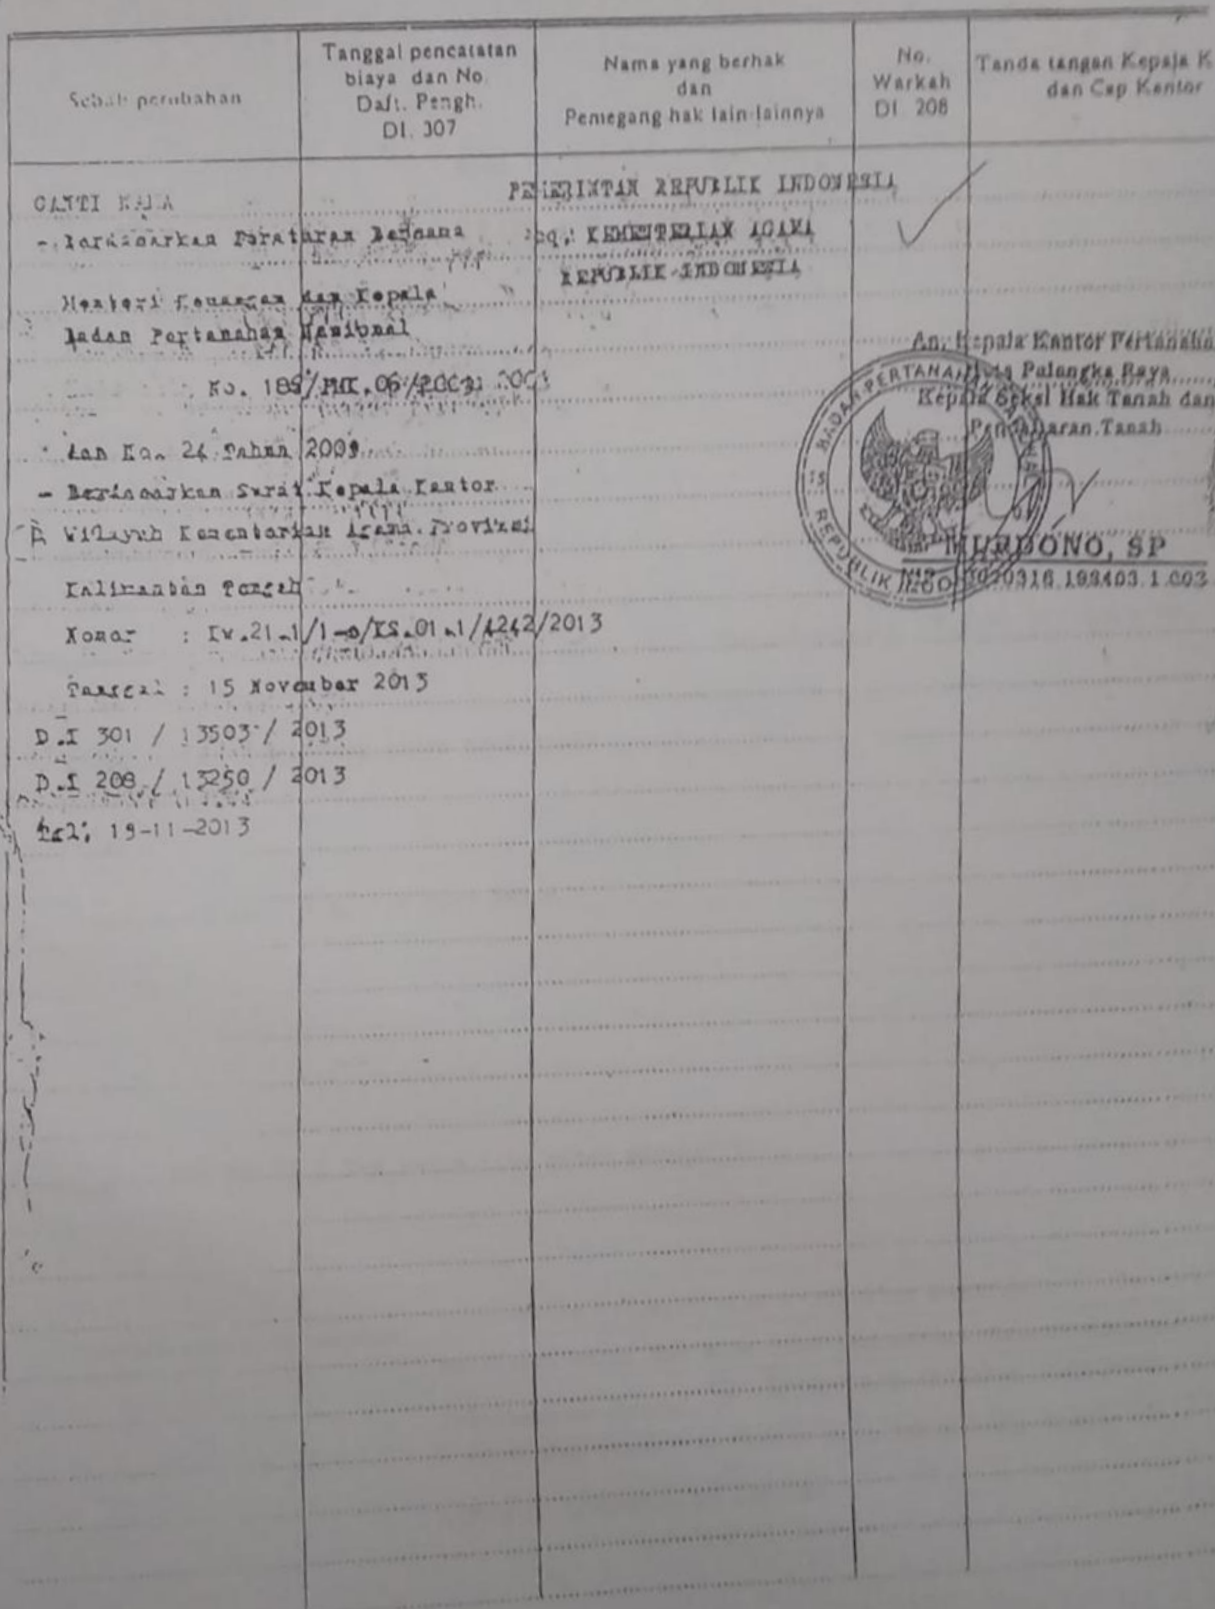 Sebab perubahan
Tanggal pencatatan
biaya dan No.
Daft. Pengh.
DI. 307
Nama yang berhak
dan
Pemegang hak lain-lainnya
No.
Warkah
DI 208
Tanda tangan Kepala K
dan Cap Kantor
GANTI NAMA
- Berdasarkan Peraturan Bersama
Menteri Keuangan dan Kepala
Badan Pertanahan Nasional
No. 186/PMK.06/2009
dan No. 24 Tahun 2009
- Berdasarkan Surat Kepala Kantor
Wilayah Kementerian Agama Provinsi
Kalimantan Tengah
Nomor : Kw.21.1/1-o/KS.01.1/4242/2013
Tanggal : 15 November 2013
D.I 301 / 13503 / 2013
D.I 208 / 13250 / 2013
Tgl: 19-11-2013
PEMERINTAH REPUBLIK INDONESIA
cq. KEMENTERIAN AGAMA
REPUBLIK INDONESIA
An. Kepala Kantor Pertanaha
Palangka Raya
Kepala Seksi Hak Tanah dan
Pendaftaran Tanah
BADAN PERTANAHAN NASIONAL
REPUBLIK INDO
MURDONO, SP
198403.1.003